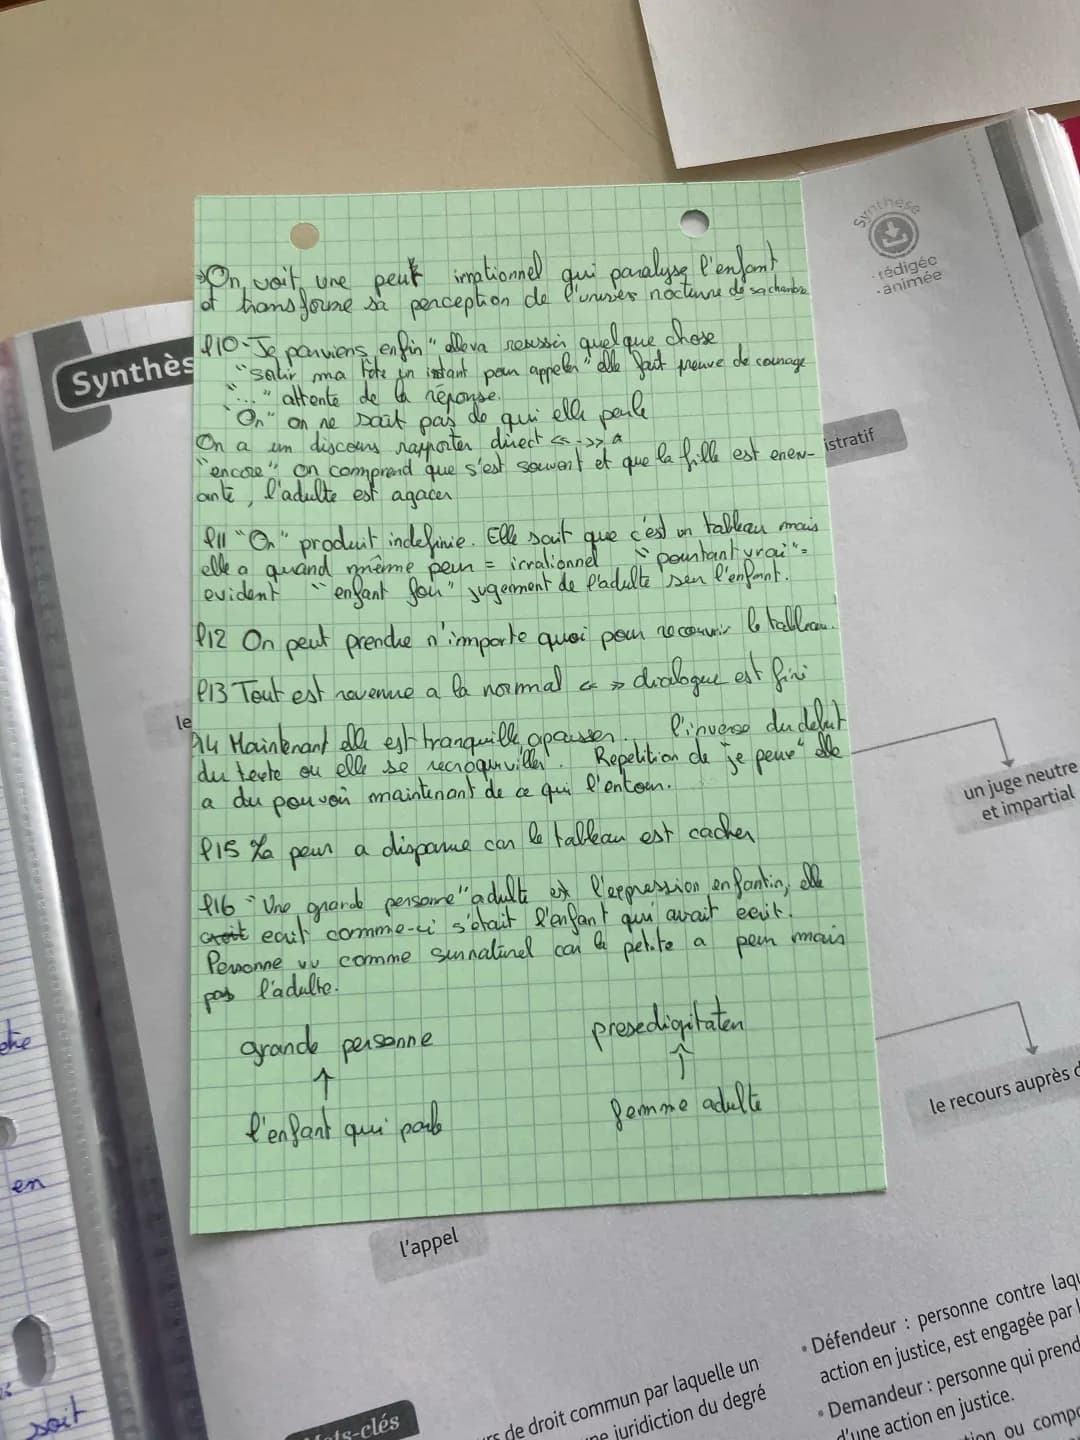 →On voit une peur irrationnel qui paralyse l'enfant
et transforme sa perception de l'univers nocturne de sa chambre
l10 "Je parviens enfin" elle va reussir quelque chose
"sortir ma tête un instant pour appeler" elle fait preuve de courage
"..." attente de la réponse.
"On" on ne sait pas de qui elle parle
On a un discours rapporter direct « - » a
"encore" on comprend que s'est souvent et que la fille est enerv-
ante, l'adulte est agacer
l11 "On" produit indefinie. Elle sait que c'est un tableau mais
elle a quand même peur = irrationnel "pourtant vrai" =
evident "enfant fou" jugement de l'adulte sur l'enfant.
l12 On peut prendre n'importe quoi pour recouvrir le tableau.
l13 Tout est revenue a la normal « » dialogue est fini
l14 Maintenant elle est tranquille, apaiser. l'inverse du debut
du texte ou elle se recroqueviller. Repetition de "je peux" elle
a du pouvoir maintenant de ce qui l'entour.
l15 La peur a disparue car le tableau est cacher
l16 "Une grande personne" adulte est l'expression enfantin, elle
ecrit comme-ci s'était l'enfant qui avait ecrit.
Personne vu comme surnaturel car la petite a peur mais
pas l'adulte.
grande personne
↑
l'enfant qui parle
presedigitateur
↑
femme adulte
Synthès
Synthèse
• rédigée
• animée
istratif
le
un juge neutre
et impartial
le recours auprès d
l'appel
en
soit
Mots-clés
rs de droit commun par laquelle un
ne juridiction du degré
• Défendeur : personne contre laqu
action en justice, est engagée par l
• Demandeur : personne qui prend
d'une action en justice.
tion ou comp